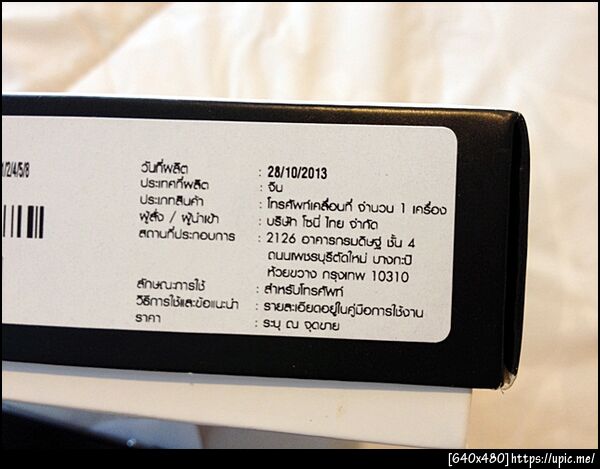 1/2/4/5/8
วันที่ผลิต : 28/10/2013
ประเทศที่ผลิต : จีน
ประเภทสินค้า : โทรศัพท์เคลื่อนที่ จำนวน 1 เครื่อง
ผู้สั่ง / ผู้นำเข้า : บริษัท โซนี่ ไทย จำกัด
สถานที่ประกอบการ : 2126 อาคารกรมดิษฐ์ ชั้น 4
ถนนเพชรบุรีตัดใหม่ บางกะปิ
ห้วยขวาง กรุงเทพ 10310
ลักษณะการใช้ : สำหรับโทรศัพท์
วิธีการใช้และข้อแนะนำ : รายละเอียดอยู่ในคู่มือการใช้งาน
ราคา : ระบุ ณ จุดขาย
[640x480]https://upic.me/